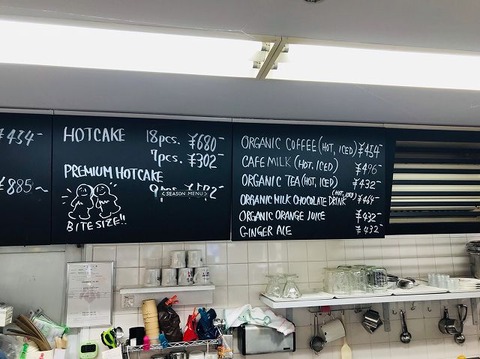 ¥434-
¥885~
HOTCAKE 18pcs. ¥680-
7pcs. ¥302-
PREMIUM HOTCAKE
<SEASON MENU>
BITE SIZE!!
ORGANIC COFFEE (HOT, ICED) ¥454-
CAFE MILK (HOT, ICED) ¥496-
ORGANIC TEA (HOT, ICED) ¥432-
ORGANIC MILK CHOCOLATE DRINK (HOT, ICED) ¥464-
ORGANIC ORANGE JUICE ¥432-
GINGER ALE ¥432-